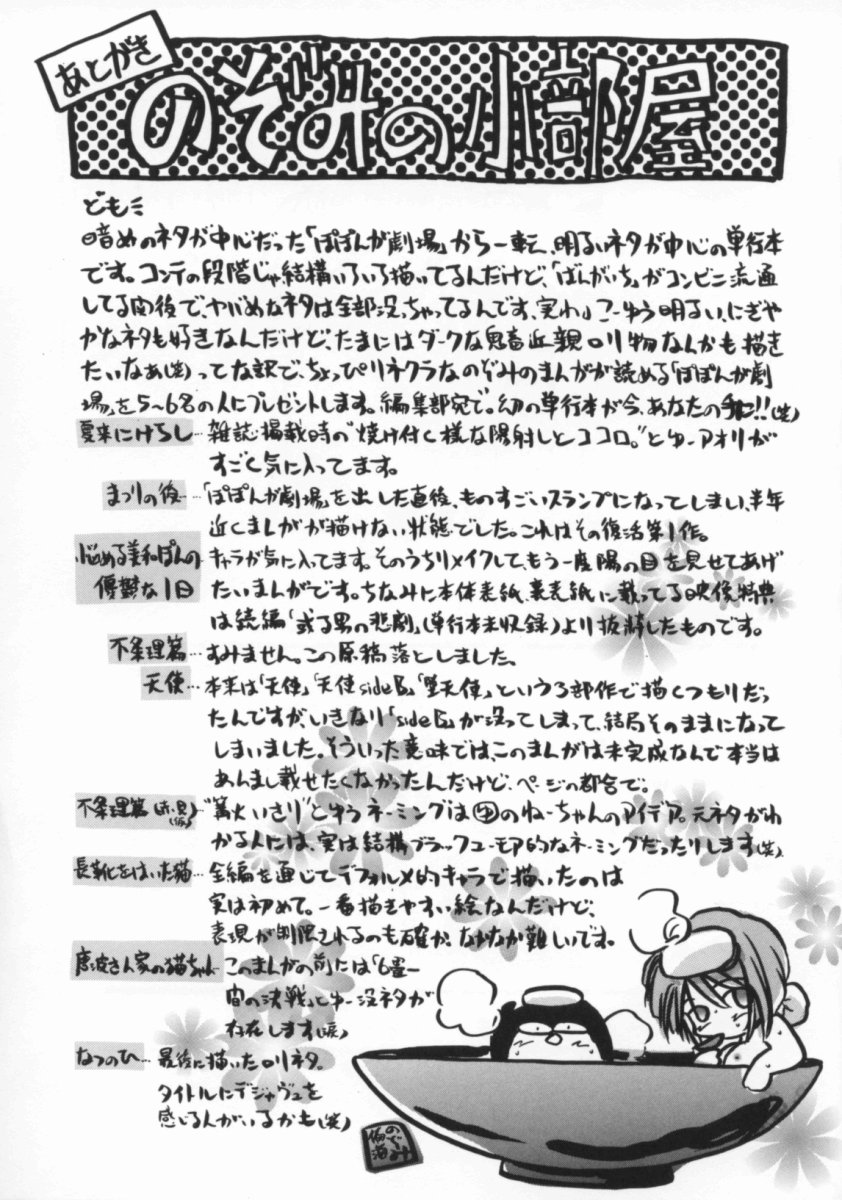 あとがき
のぞみの小部屋
ども
暗めのネタが中心だった「ぽぽんが劇場」から一転、明るいネタが中心の単行本
です。コンテの段階じゃ結構いろいろ描いてるんだけど、「ばんがいち」がコンビニ流通
してる関係で、ヤバめなネタは全部没っちゃってるんです、実わ」こーゆう明るい、にぎや
かなネタも好きなんだけど、たまにはダークな鬼畜近親ロリ物なんかも描き
たいなあ(笑)ってな訳で、ちょっぴりネクラなのぞみのまんがが読める「ぽぽんが劇
場」を5~6名の人にプレゼントします。編集部宛で。幻の単行本が今、あなたの手に!!(笑)
夏来にけらし…雑誌掲載時の“焼け付く様な陽射しとココロ。”とゆーアオリが
すごく気に入ってます。
まつりの後…「ぽぽんが劇場」を出した直後、ものすごいスランプになってしまい、半年
近くまんがが描けない状態でした。これはその復活第1作。
悩める美和ぽんの
優鬱な1日
…キャラが気に入ってます。そのうちリメイクして、もう一度陽の目を見せてあげ
たいまんがです。ちなみに本体表紙、裏表紙に載ってる映像特典
は続編「或る男の悲劇」(単行本未収録)より抜粋したものです。
不条理篇…すみません。この原稿落としました。
天使…本来は「天使」「天使sideB」「堕天使」という3部作で描くつもりだっ
たんですが、いきなり「sideB」が没ってしまって、結局そのままになって
しまいました。そういった意味では、このまんがは未完成なんで本当は
あんまし載せたくなかったんだけど、ページの都合で。
不条理篇
…“篝火いさり”とゆうネーミングは のねーちゃんのアイデア。元ネタがわ
かる人には、実は結構ブラックユーモア的なネーミングだったりします(笑)
長靴をはいた猫…全編を通じてデフォルメ的キャラで描いたのは
実は初めて。一番描きやすい絵なんだけど、
表現が制限されるのも確か。なかなか難しいです。
さん家の猫ちゃん…このまんがの前には「6畳一
間の決戦」とゆー没ネタが
存在します(涙)
なつのひ…最後に描いたロリネタ。
タイトルにデジャヴュを
感じる人がいるかも(笑)